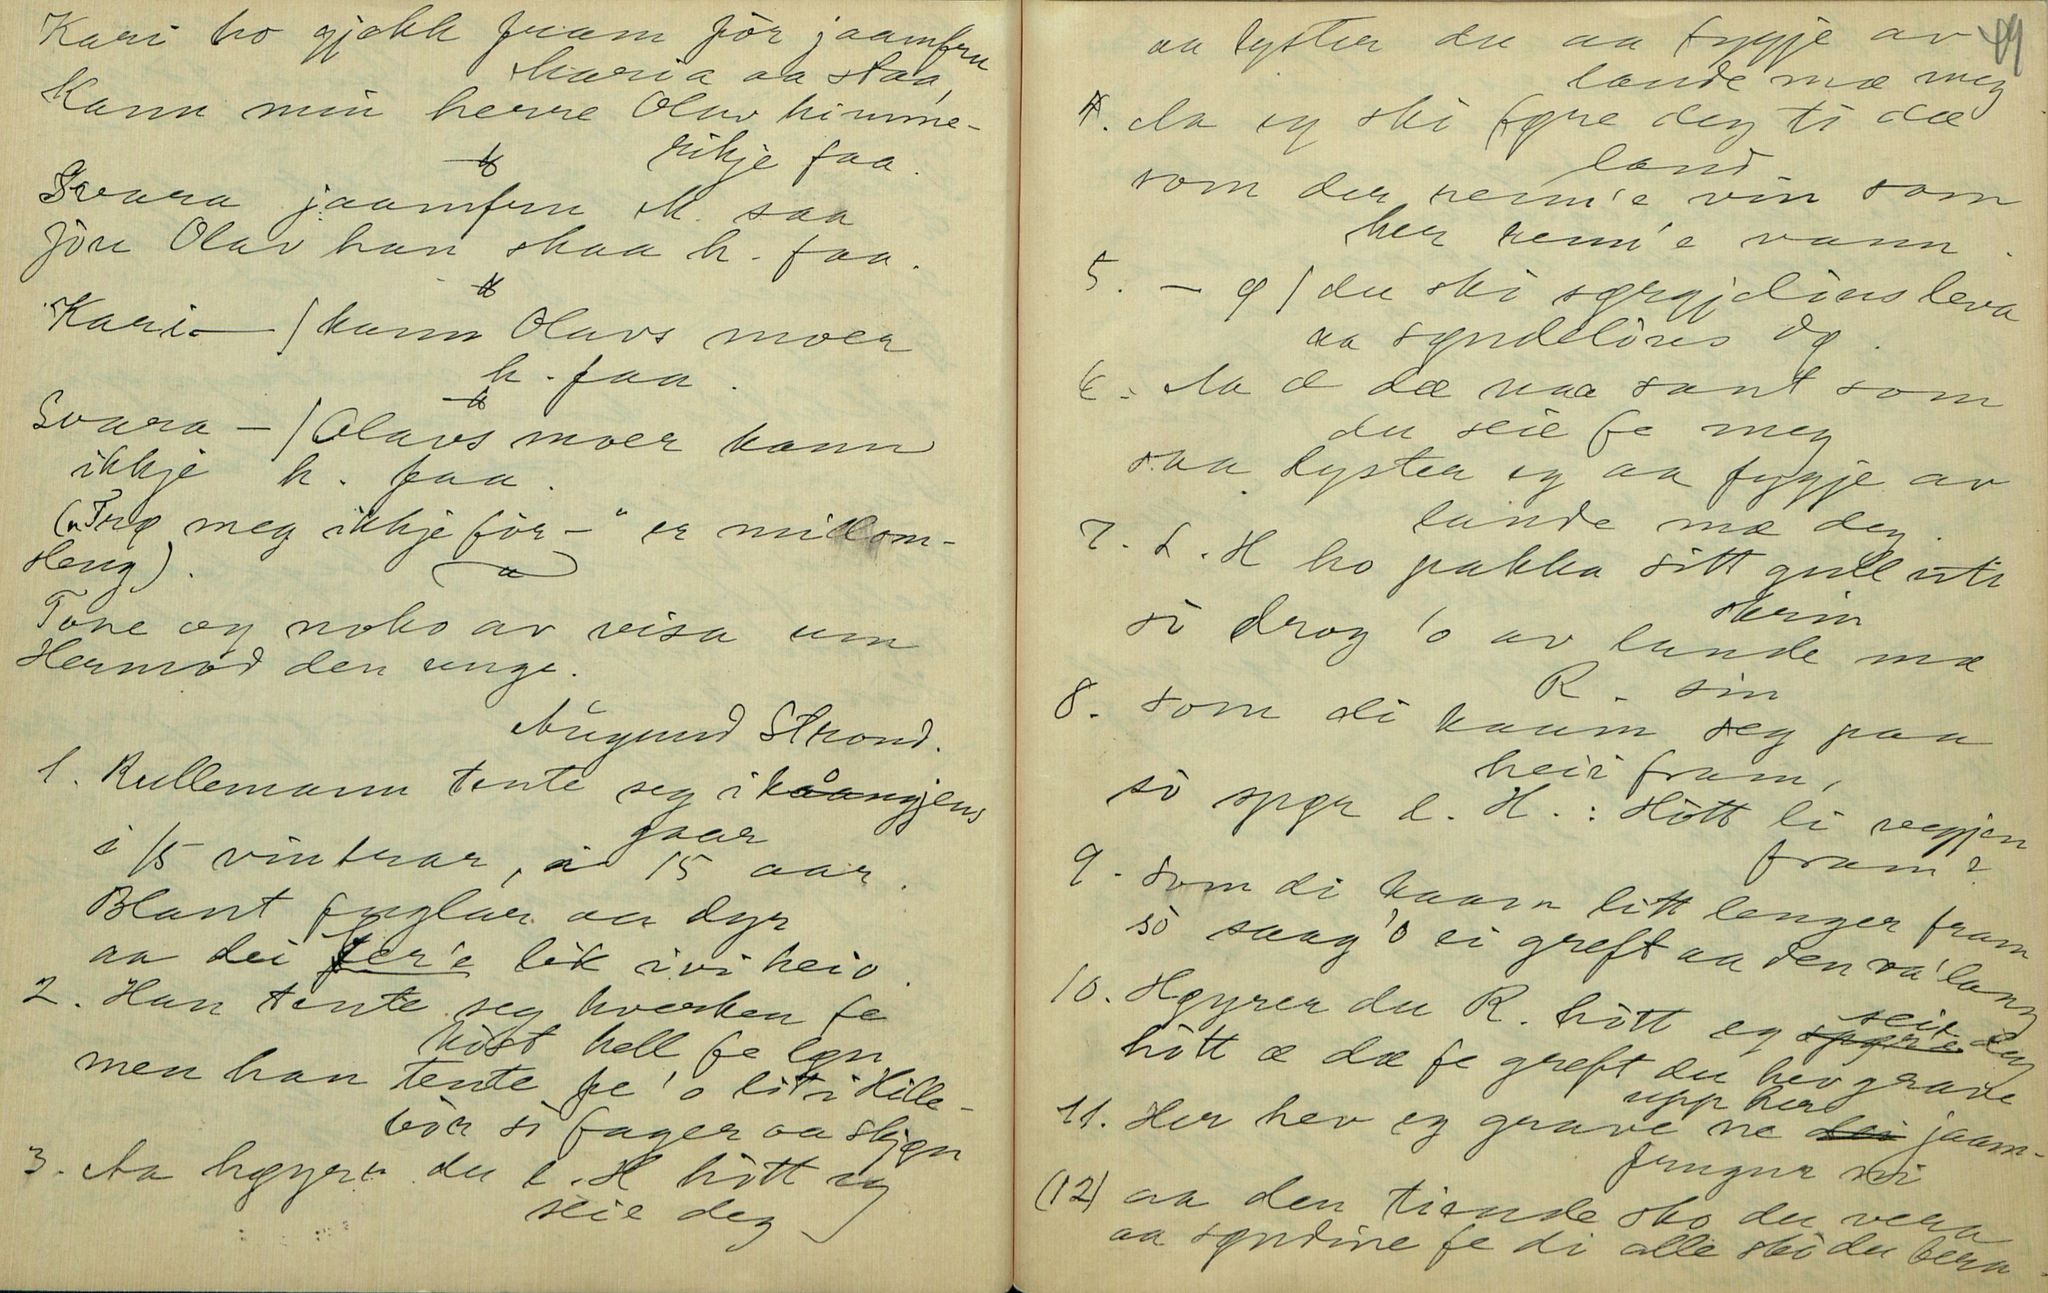 Kari ho gjekk fram för jaamfru
Maria aa staa,
Kann min herre Olav himme-
rikje faa.
Svara jaamfru M. saa
Jön Olav han skaa h. faa.
Kari — / kann Olavs moer
h. faa.
Svara — / Olavs moer kann
ikkje h. faa.
("Trø meg ikkje för —" er millom-
steng).
Tone og noko av visa um
Hermod den unge.
Aügund Strond.
1. Rullemann tente seg i kaangjens
gaar
i 15 vintrar, i 15 aar.
Blant fuglar aa dyr
aa dei fer'e lik ivi heio.
2. Han tente seg hverken fe
kost hell fe løn
men han tente fe 'o liti Hille-
bör si fager aa skjøn
3. Aa høyrer du l. H hött eg
seie deg
49
aa lyster du aa fygje av
lande mæ meg
4. Aa eg ski føre deg ti dæ
land
som der renn'e vin som
her renn'e vann.
5. — ø / du ski sørgjelaus leva
aa syndelöus dø.
6. Aa æ dæ naa sant som
du seie fe meg
saa lyster eg aa fygje av
lande mæ deg.
7. L. H ho pakka sitt gull uti
skrin
sö drog 'o av lande mæ
R. sin
8. Som di kaam seg paa
heii fram,
sö spør l. H.: Hött li vegjen
fram?
9. Som di kaam litt lenger fram
sö saag 'o ei greft aa den va' lang
10. Høyrer du R. hött eg seie deg
hött æ dæ fe greft du hev grave
upp her
11. Her hev eg grave ne jaam-
frugur ni
(12) aa den tiende sko du vera
aa syndine fe di alle skö du bera.